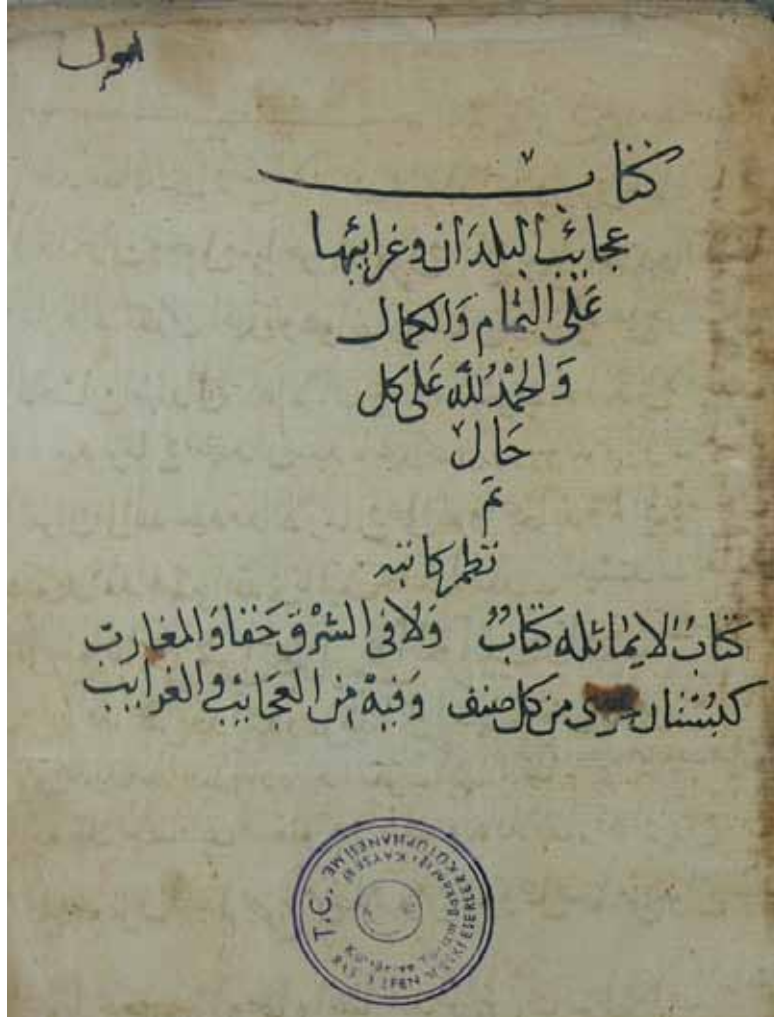 كتاب
عجايب البلدان وغرايبها
على التمام والكمال
والحمد لله على كل
حال
تم
كاتبه
كتابٌ لا يماثله كتابٌ ولا في الشرق حقا والمغارب
كبستان من كل صنف وفيه من العجائب والغرايب
T.C.
KAYSERİ
RAŞİT EFENDİ ESKİ ESERLER KÜTÜPHANESİ